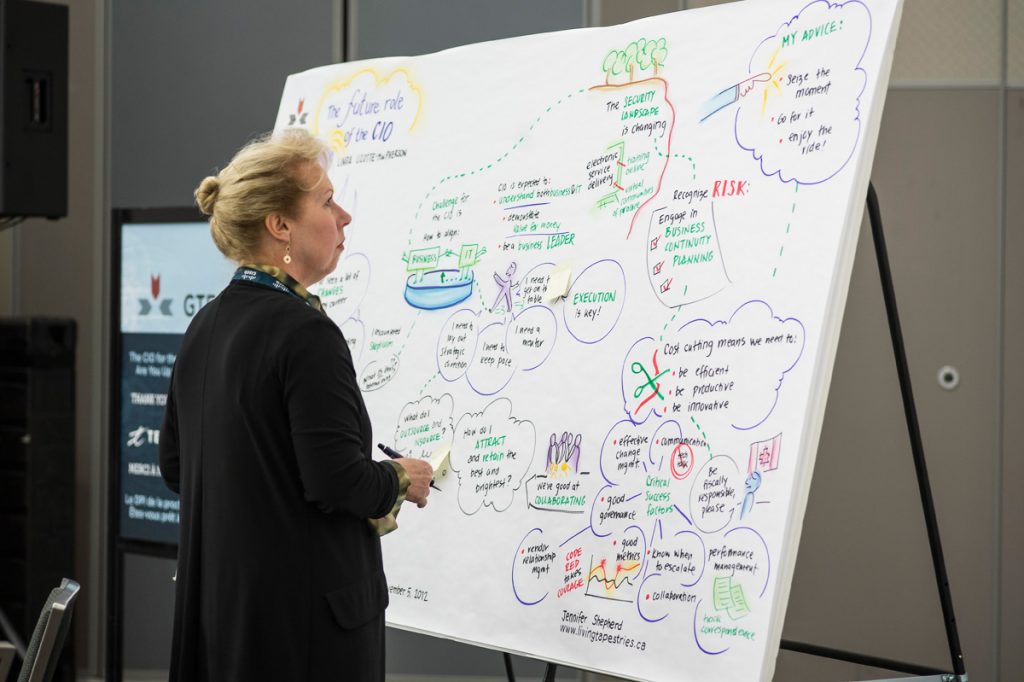 The future role
of the CIO
LINDA
MY ADVICE:
• Seize the
moment
• Go for it
• enjoy the
ride!
The SECURITY
LANDSCAPE
is changing
electronic
service
delivery
training
online
virtual
communities
of practice
Recognize RISK:
Engage in
BUSINESS
CONTINUITY
PLANNING
Challenge for
the CIO is
How to align:
BUSINESS
IT
CIO is expected to:
• understand both business & IT
• demonstrate
value for money
• be a business LEADER
need a lot of
CHANGES
career
I encountered
What is the
I need to
lay out
strategic
direction
I need to
keep pace
I need a
mentor
I need to
get on to
table
EXECUTION
is key!
Cost cutting means we need to:
• be efficient
• be productive
• be innovative
What do I
OUTSOURCE and
INSOURCE?
How do I
ATTRACT
and retain the
best and
brightest?
we're good at
COLLABORATING
• effective
change
mgmt.
• communication
Critical
Success
factors
Be
fiscally
responsible,
please
• good
governance
• vendor
relationship
mgmt
CODE
RED
takes
COURAGE
• good
metrics
• Know when
to escalate
• collaboration
performance
management
correspondence
Jennifer Shepherd
www.livingtapestries.ca
ember 5, 2012
GTE
The CIO for the
Are You Up
THANK YO